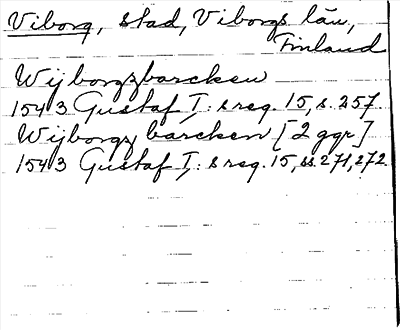 Viborg, stad, Viborgs län,
Finland
Wijborgzbarcken
1543 Gustaf I: s reg. 15, s. 257.
Wijborgz barcken [2 ggr]
1543 Gustaf I: s reg. 15, ss. 271, 272.